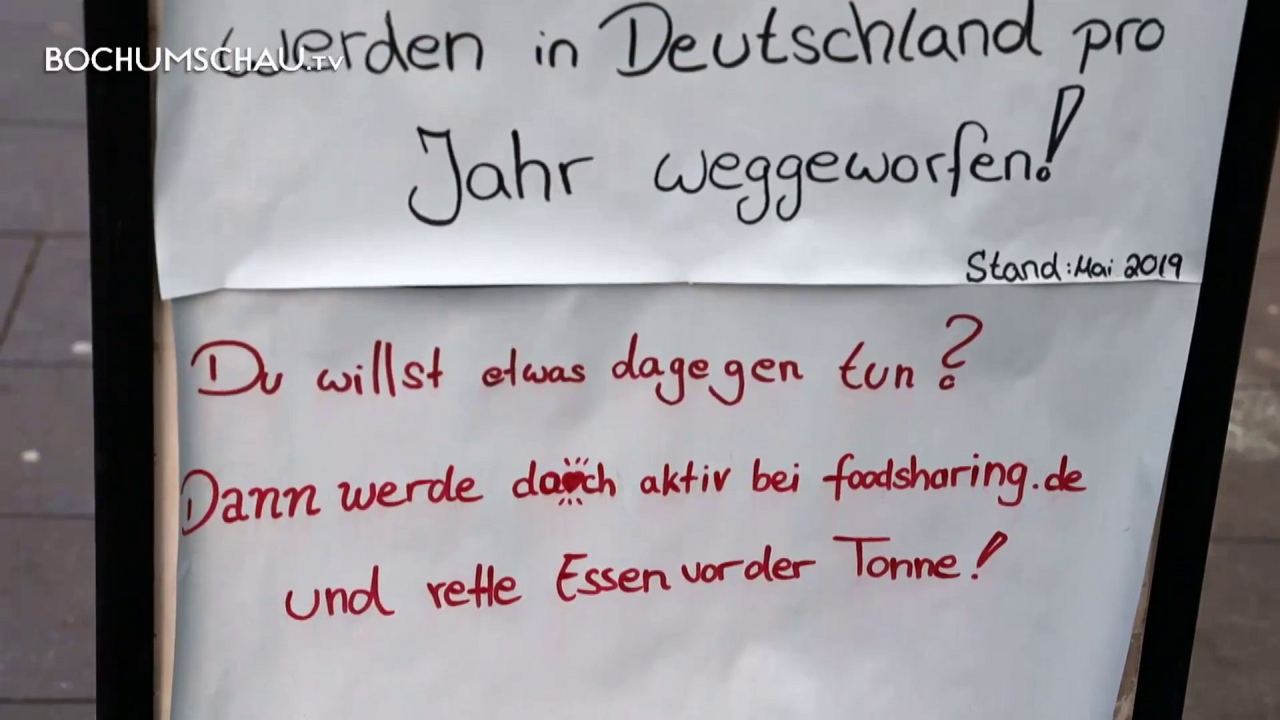 BOCHUMSCHAU.TV
werden in Deutschland pro
Jahr weggeworfen!
Stand: Mai 2019
Du willst etwas dagegen tun?
Dann werde doch aktiv bei foodsharing.de
und rette Essen vor der Tonne!